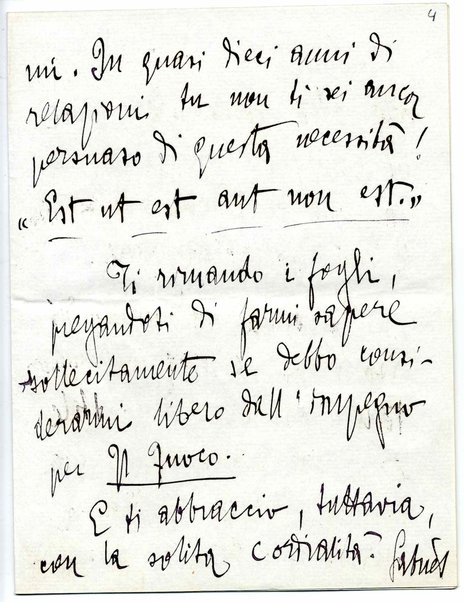 4
mi. In quasi dieci anni di
relazioni tu non ti sei ancor
persuaso di questa necessità!
"Est ut est aut non est."
Ti rimando i fogli,
pregandoti di farmi sapere
sollecitamente se debbo consi-
derarmi libero dall'impegno
per Il Fuoco.
E ti abbraccio, tuttavia,
con la solita cordialità. Gabriel